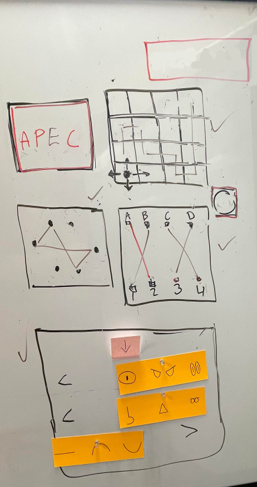 APEC
A B C D
1 2 3 4